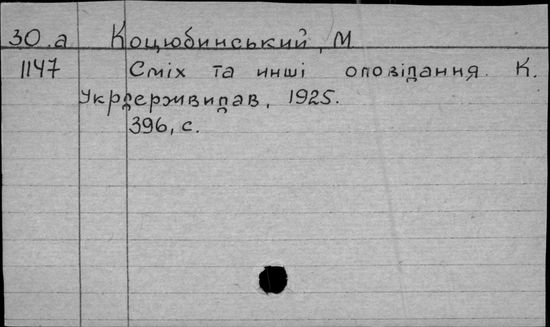 30.а Коцюбинський, М.
1147 Сміх та инші оповідання. К.
Укрдержвидав, 1925.
396, с.